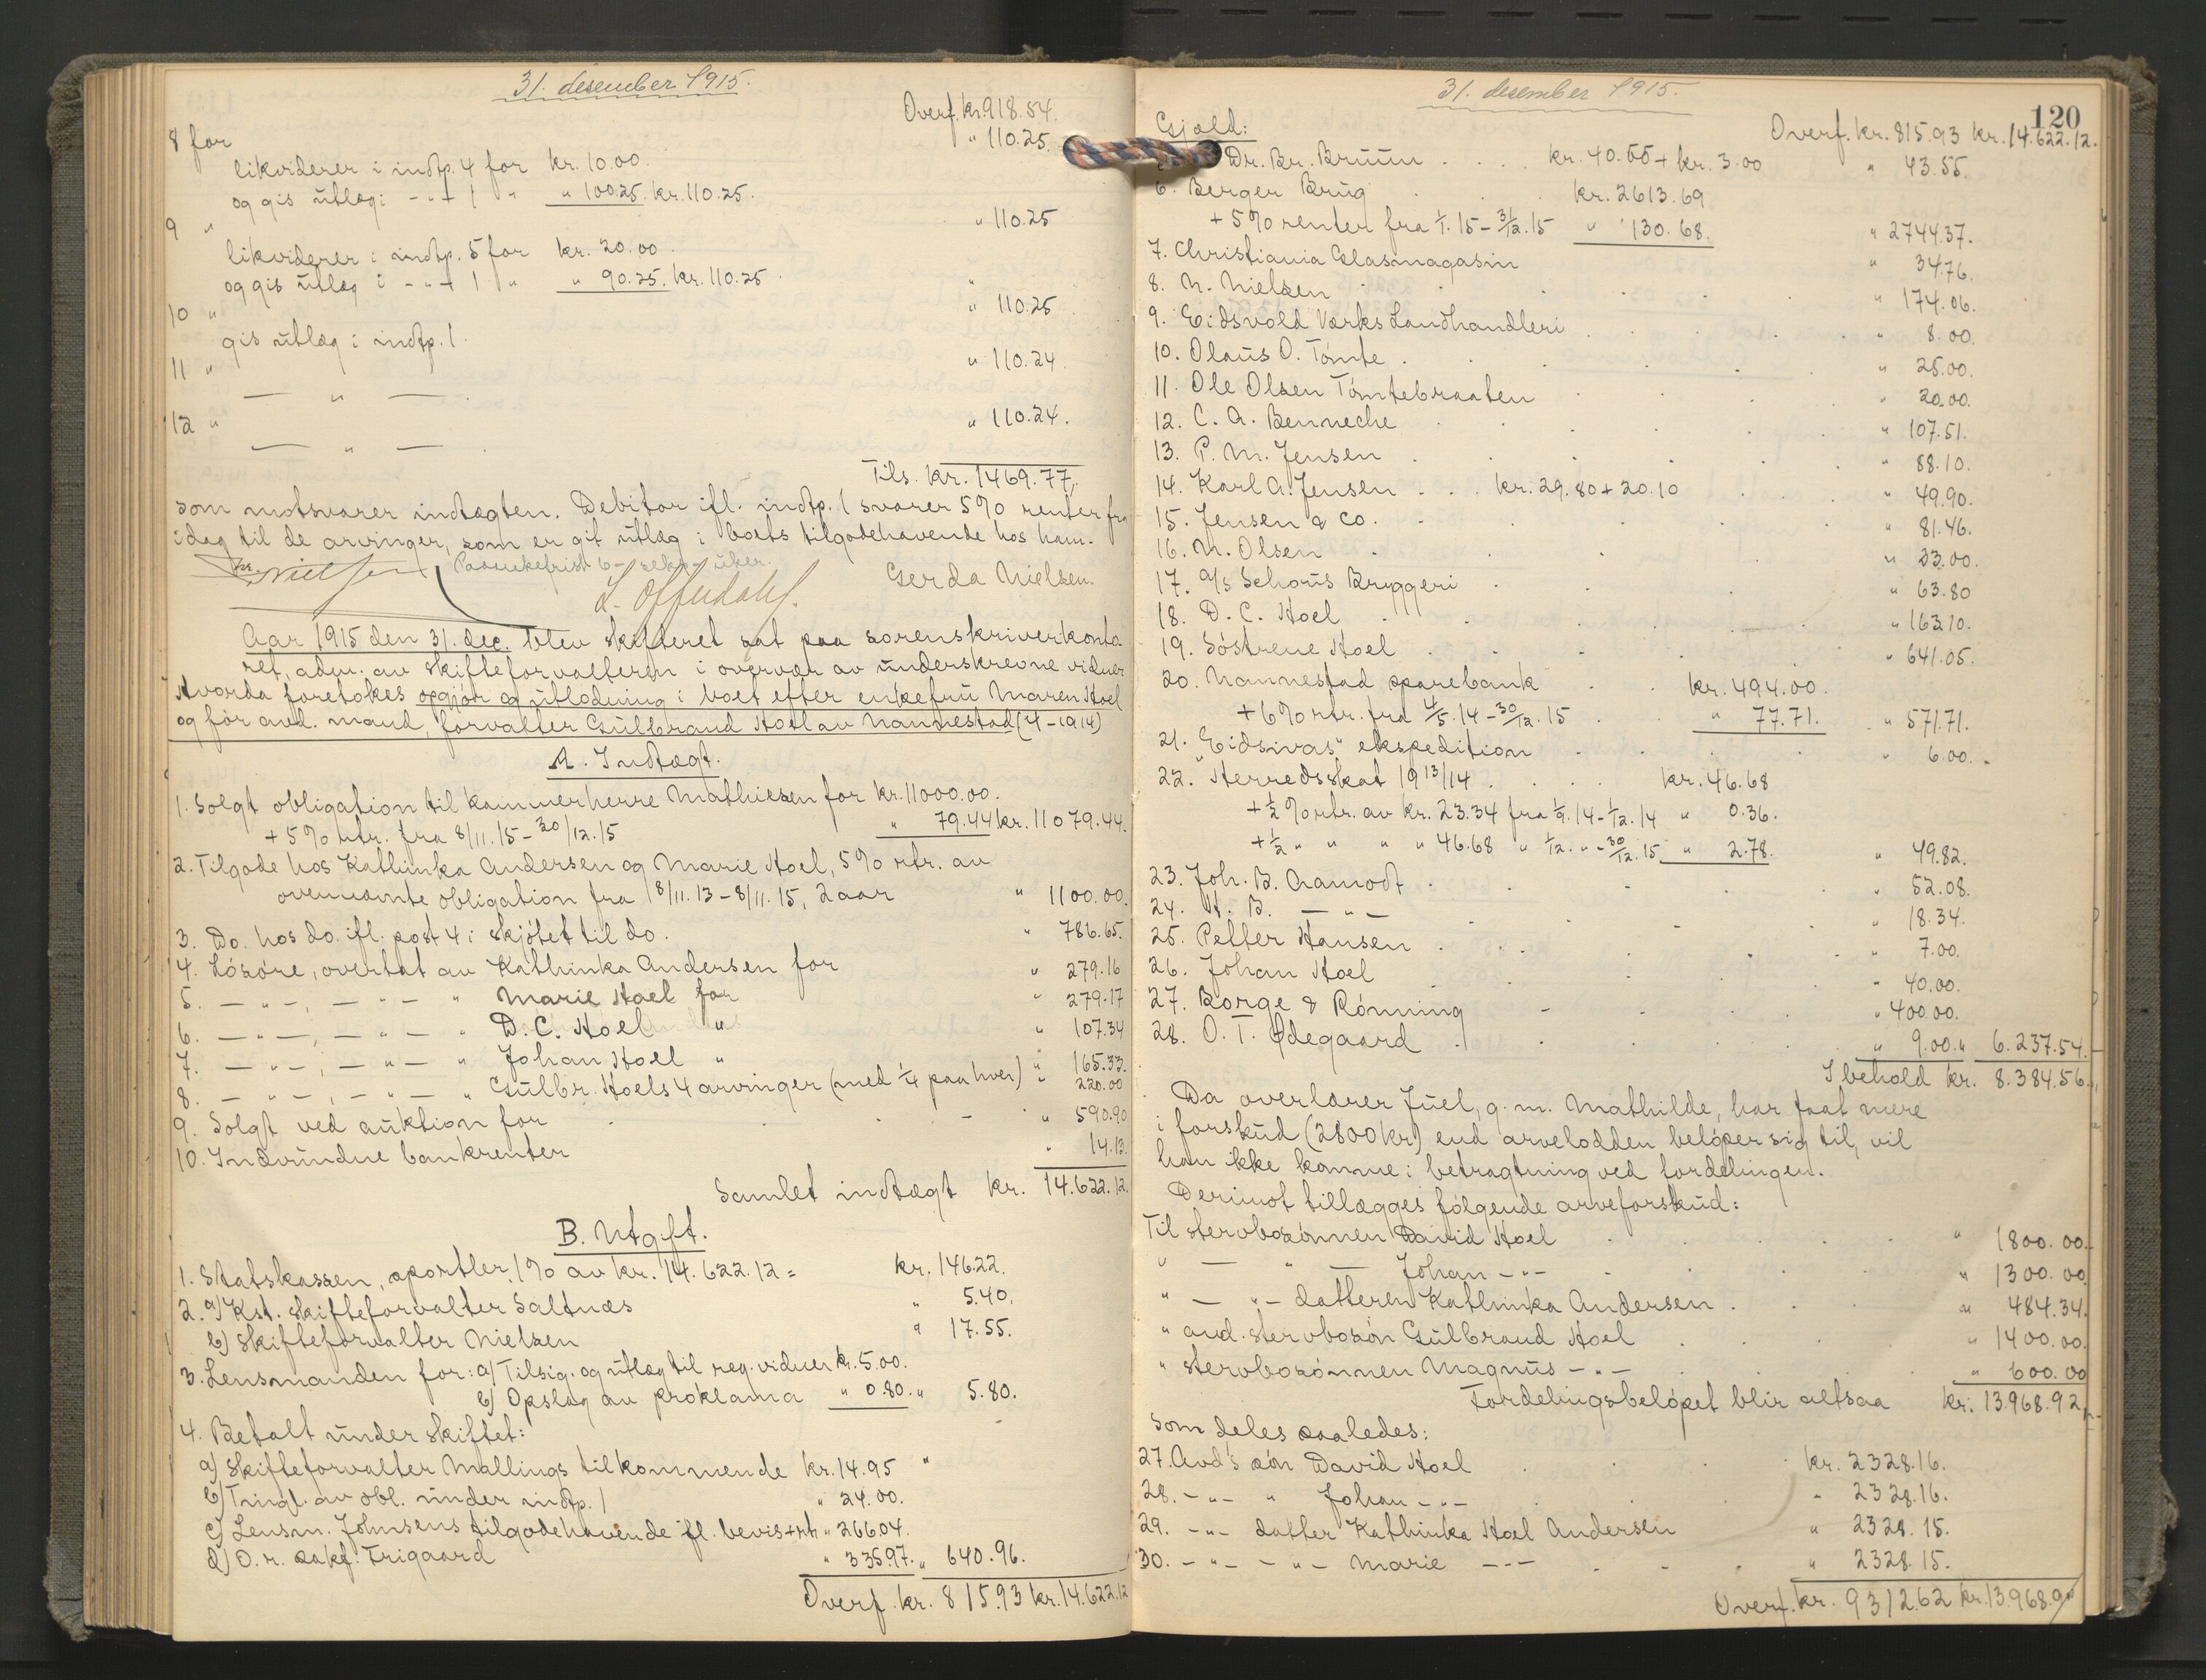 31. desember 1915.
Overf. kr. 918.54.
8 for " 110.25.
likviderer i indtp. 4 for kr. 10.00.
og gis utlæg i -"- 1 " " 100.25. kr. 110.25.
9 " " 110.25
likviderer i indtp. 5 for kr. 20.00.
og gis utlæg i -"- 1 " " 90.25. kr. 110.25.
10 " " 110.25
gis utlæg i indtp. 1.
11 " " 110.24.
— " —
12 " " 110.24.
— " —
Tils. kr. 1469.77,
som motsvarer indtægten. Debitor ifl. indtp. 1 svarer 5% renter fra
idag til de arvinger, som er git utlæg i boets tilgodehavende hos ham.
Paaankefrist 6 - seks - uker.
Nielsen L. Offerdahl. Gerda Nielsen.
Aar 1915 den 31. dec. blev skifteret sat paa sorenskriverkonto-
ret, adm. av skifteforvalteren i overvær av underskrevne vidner
Hvorda foretokes opgjør og utlodning i boet efter enkefru Maren Hoel
og før avd. mand, forvalter Gulbrand Hoel av Nannestad (4-1914)
A. Indtægt.
1. Solgt obligation til kammerherre Mathiesen for kr. 11000.00.
+ 5% rtr. fra 8/11.15 - 30/12.15 " 79.44 kr. 11079.44.
2. Tilgode hos Kathinka Andersen og Marie Hoel, 5% rtr. av
ovennævnte obligation fra 8/11.13 - 8/11.15, 2 aar " 1100.00.
3. Do. hos do. ifl. post 4 i skjøtet til do. " 786.65.
4. Løsøre, overtat av Kathinka Andersen for " 279.16
5. — " —, — " — " Marie Hoel for " 279.17
6. — " —, — " — " D. C. Hoel " " 107.34
7. — " —, — " — " Johan Hoel " " 165.33.
8. — " —, — " — " Gulbr. Hoels 4 arvinger (med 1/4 paa hver) " 220.00
9. Solgt ved auktion for " 590.90
10. Indvundne bankrenter " 14.13.
Samlet indtægt kr. 14.622.12.
B. Utgift.
1. Statskassen, sportler 1% av kr. 14.622.12 = kr. 146.22.
2. a) Kst. skifteforvalter Saltnæs " 5.40.
b) Skifteforvalter Nielsen " 17.55.
3. Lensmanden for: a) Tilsig. og utlæg til reg. vidner kr. 5.00.
b) Opslag av proklama " 0.80. " 5.80.
4. Betalt under skiftet:
a) Skifteforvalter Mallings tilkommende kr. 14.95 "
b) Tingl. av obl. under indtp. 1 " 24.00.
c) Lensm. Johnsens tilgodehavende ifl. bevis + rtr. " 266.04.
d) O. r. sakf. Frigaard " 335.97. " 640.96.
Overf. kr. 815.93 kr. 14.622.12
31. desember 1915.
120
Gjæld: Overf. kr. 815.93 kr. 14.622.12.
Dr. Br. Bruun . . . kr. 40.55 + kr. 3.00 " 43.55.
6. Berger Brug . . kr. 2613.69
+ 5% renter fra 1/1.15 - 31/12.15 " 130.68. " 2744.37.
7. Christiania Glasmagasin " 34.76.
8. N. Nielsen " 174.06.
9. Eidsvold Værks Landhandleri " 8.00.
10. Olaus O. Tømte " 25.00.
11. Ole Olsen Tømtebraaten " 20.00.
12. C. A. Benneche " 107.51.
13. P. M. Jensen " 88.10.
14. Karl A. Jensen . . . kr. 29.80 + 20.10 " 49.90.
15. Jensen & Co. " 81.46.
16. N. Olsen " 23.00.
17. a/s Schous Bryggeri " 63.80
18. D. C. Hoel " 163.10.
19. Søstrene Hoel " 641.05.
20. Nannestad sparebank . . kr. 494.00.
+ 6% rtr. fra 4/5.14 - 30/12.15 " 77.71. " 571.71.
21. "Eidsivas" ekspedition " 6.00.
22. Herredsskat 1913/14 . . . kr. 46.68
+ 1/2 % rtr. av kr. 23.34 fra 1/9.14 - 1/12.14 " 0.36.
+ 1/2 " " " " 46.68 " 1/12. " - 30/12.15 " 2.78. " 49.82.
23. Joh. B. Aamodt " 52.08.
24. H. B. — " — " 18.34.
25. Petter Hansen " 7.00.
26. Johan Hoel " 40.00.
27. Borge & Rønning " 400.00.
28. O. T. Ødegaard " 9.00. " 6.237.54.
I behold kr. 8.384.56.
Da overlærer Juel, g. m. Mathilde, har faat mere
i forskud (2800 kr.) end arvelodden beløper sig til, vil
han ikke komme i betragtning ved fordelingen.
Derimot tillægges følgende arveforskud:
Til stervbosønnen David Hoel " 1800.00.
" — " — Johan — " — " 1300.00
" — " — datteren Kathinka Andersen " 484.34.
" avd. stervbosøn Gulbrand Hoel " 1400.00.
" stervbosønnen Magnus — " — " 600.00
Fordelingsbeløpet blir altsaa kr. 13.968.92,
som deles saaledes:
27. Avd's søn David Hoel kr. 2328.16.
28. — " — " Johan — " — " 2328.16.
29. — " — datter Kathinka Hoel Andersen " 2328.15.
30. — " — — " — Marie — " — " 2328.15.
Overf. kr. 9312.62 kr. 13.968.90